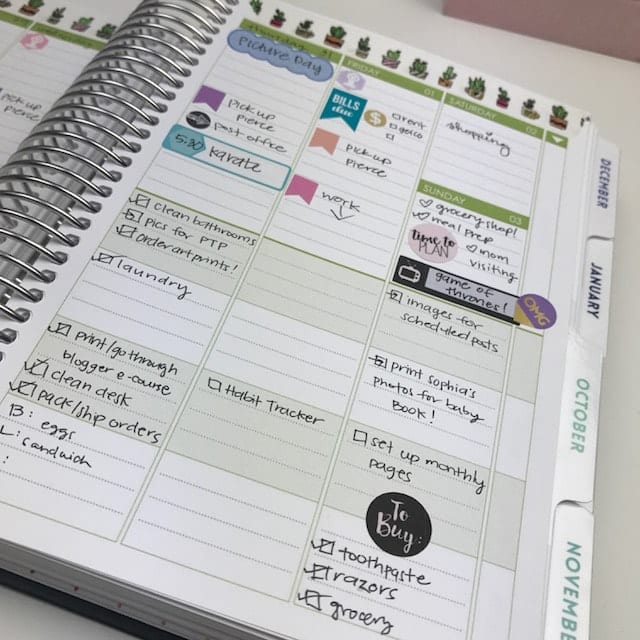 pick up
pierce
Picture Day
pick up
pierce
post office
5:30 karate
clean bathrooms
Pics for PTP
order art prints!
laundry
print/go through
blogger e-course
clean desk
pack/ship orders
B: eggs
L: sandwich
:
FRIDAY
01
BILLS
due
$
rent
pick up
pierce
work
Habit Tracker
SATURDAY
02
shopping
SUNDAY
03
grocery shop!
meal prep
time to
PLAN
mom
visiting
game of
thrones!
OMG
images for
scheduled posts
print Sophia's
photos for baby
Book!
set up monthly
pages
To
Buy:
toothpaste
razors
grocery
DECEMBER
JANUARY
OCTOBER
NOVEMBE